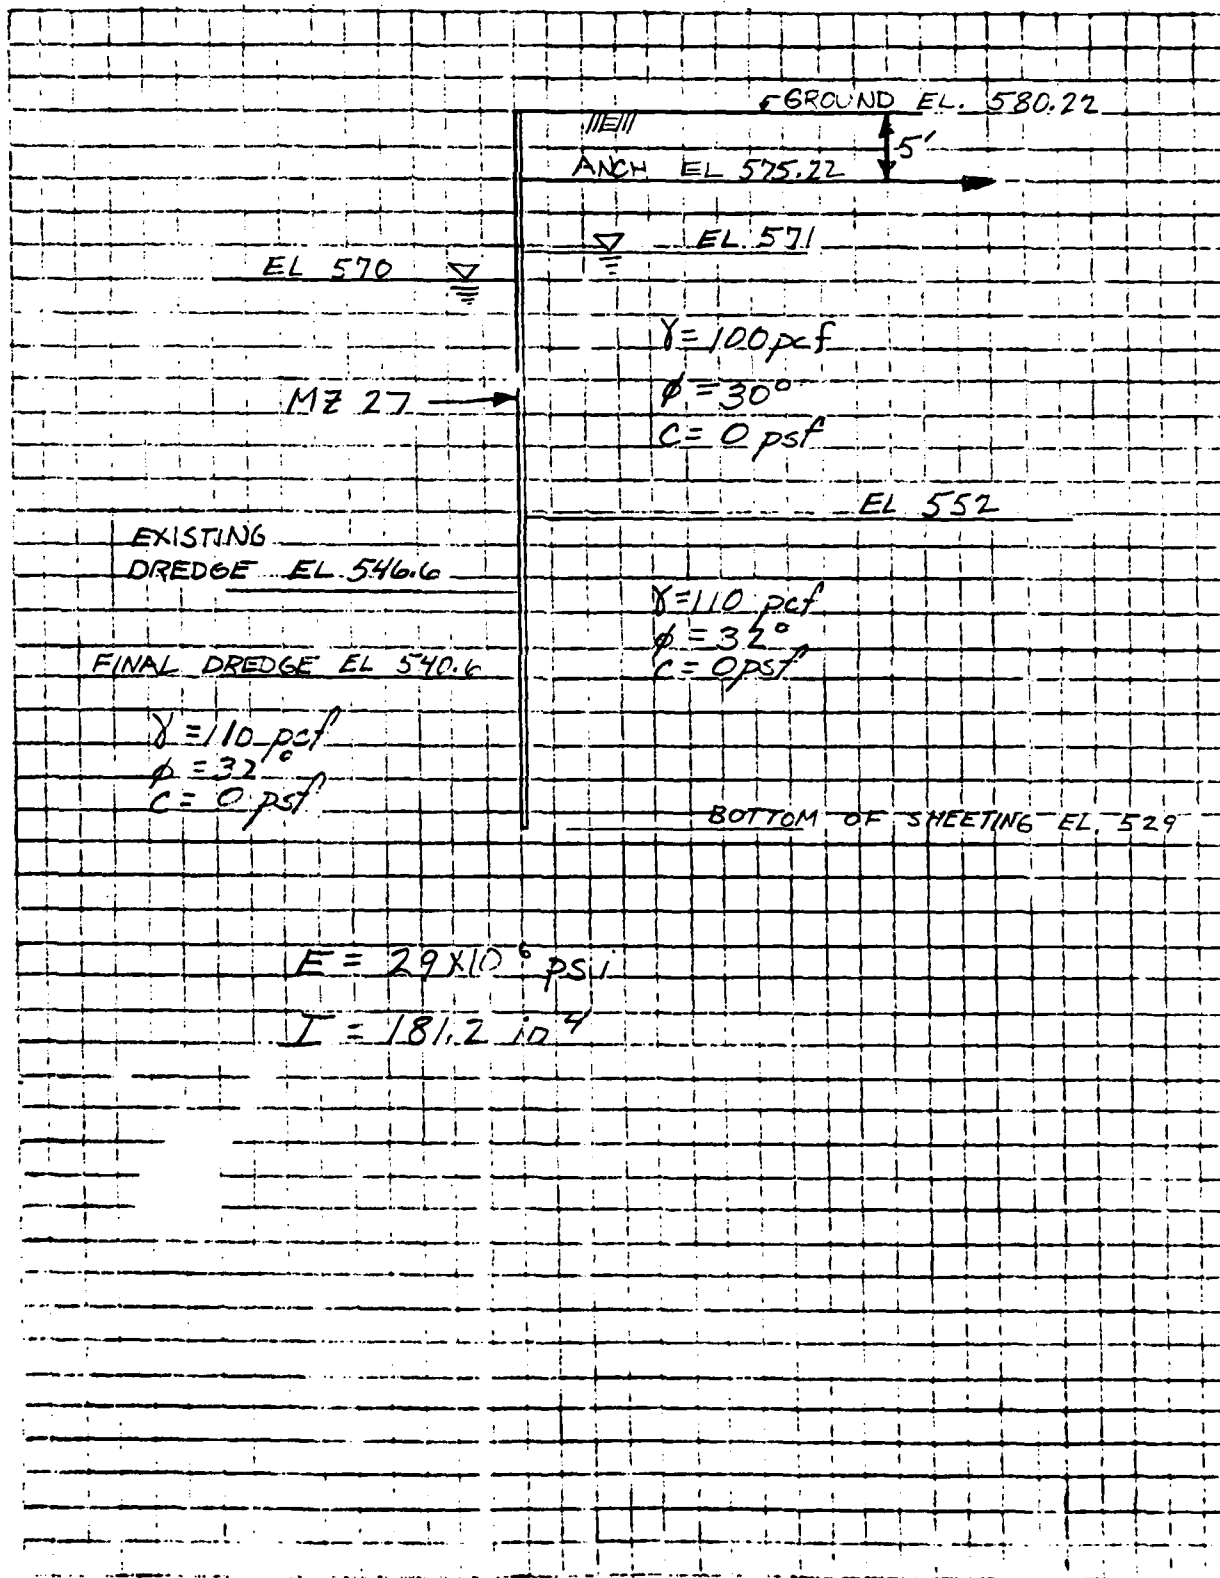 GROUND EL. 580.22
5'
ANCH EL 575.22
EL. 571
EL 570
γ = 100 pcf
φ = 30°
C = 0 psf
MZ 27
EL 552
EXISTING
DREDGE EL. 546.6
γ = 110 pcf
φ = 32°
C = 0 psf
FINAL DREDGE EL 540.6
γ = 110 pcf
φ = 32°
C = 0 psf
BOTTOM OF SHEETING EL. 529
E = 29 X10⁶ psi
I = 181.2 in⁴